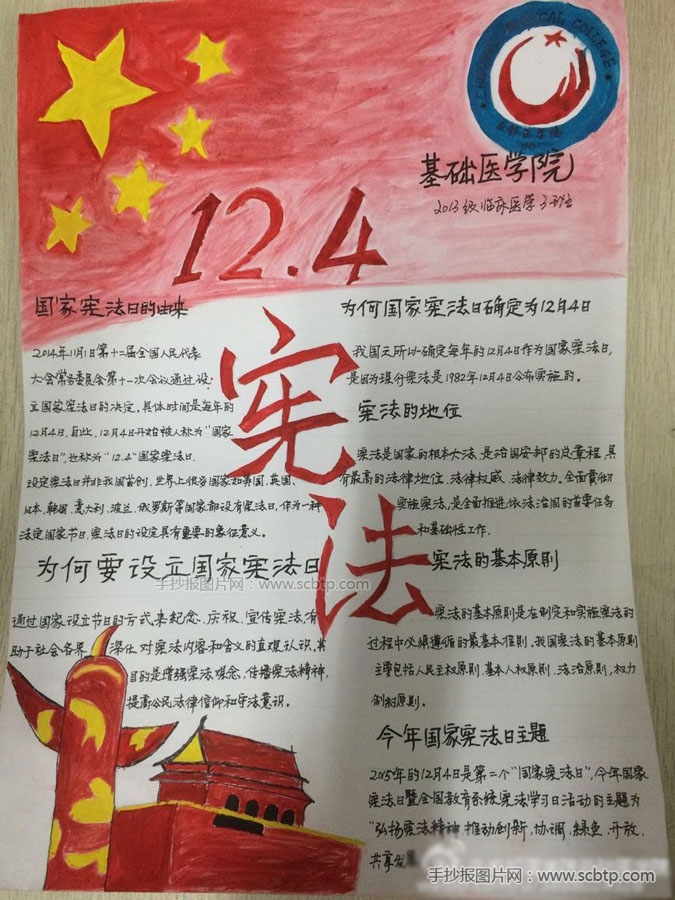 CHENGDU MEDICAL COLLEGE
成都医学院
1947
基础医学院
2013级临床医学3班
12.4
宪法
国家宪法日的由来
2014年11月1日第十二届全国人民代表
大会常务委员会第十一次会议通过设
立国家宪法日的决定。具体时间是每年的
12月4日，自此，12月4日开始被人称为“国家
宪法日”，也称为“12.4”国家宪法日。
设定宪法日并非我国首创，世界上很多国家如美国、英国、
日本、韩国、意大利、波兰、俄罗斯等国家都设有宪法日，作为一种
法定国家节日，宪法日的设定具有重要的象征意义。
为何要设立国家宪法日
通过国家设立节日的方式来纪念、庆祝、宣传宪法，有
助于社会各界深化对宪法内容和含义的直观认识，其
目的是增强宪法观念，传播宪法精神，
提高公民法律信仰和守法意识。
为何国家宪法日确定为12月4日
我国之所以确定每年的12月4日作为国家宪法日，
是因为现行宪法是1982年12月4日公布实施的。
宪法的地位
宪法是国家的根本大法，是治国安邦的总章程，具
有最高的法律地位、法律权威、法律效力。全面贯彻
实施宪法，是全面推进依法治国的首要任务
和基础性工作。
宪法的基本原则
宪法的基本原则是在制定和实施宪法的
过程中必须遵循的最基本准则，我国宪法的基本原则
主要包括人民主权原则，基本人权原则，法治原则，权力
制约原则。
今年国家宪法日主题
2015年的12月4日是第二个“国家宪法日”，今年国家
宪法日暨全国教育系统宪法学习日活动的主题为
“弘扬宪法精神 推动创新，协调，绿色，开放，
共享发
手抄报图片网：www.scbtp.com
手抄报图片网：www.scbtp.com